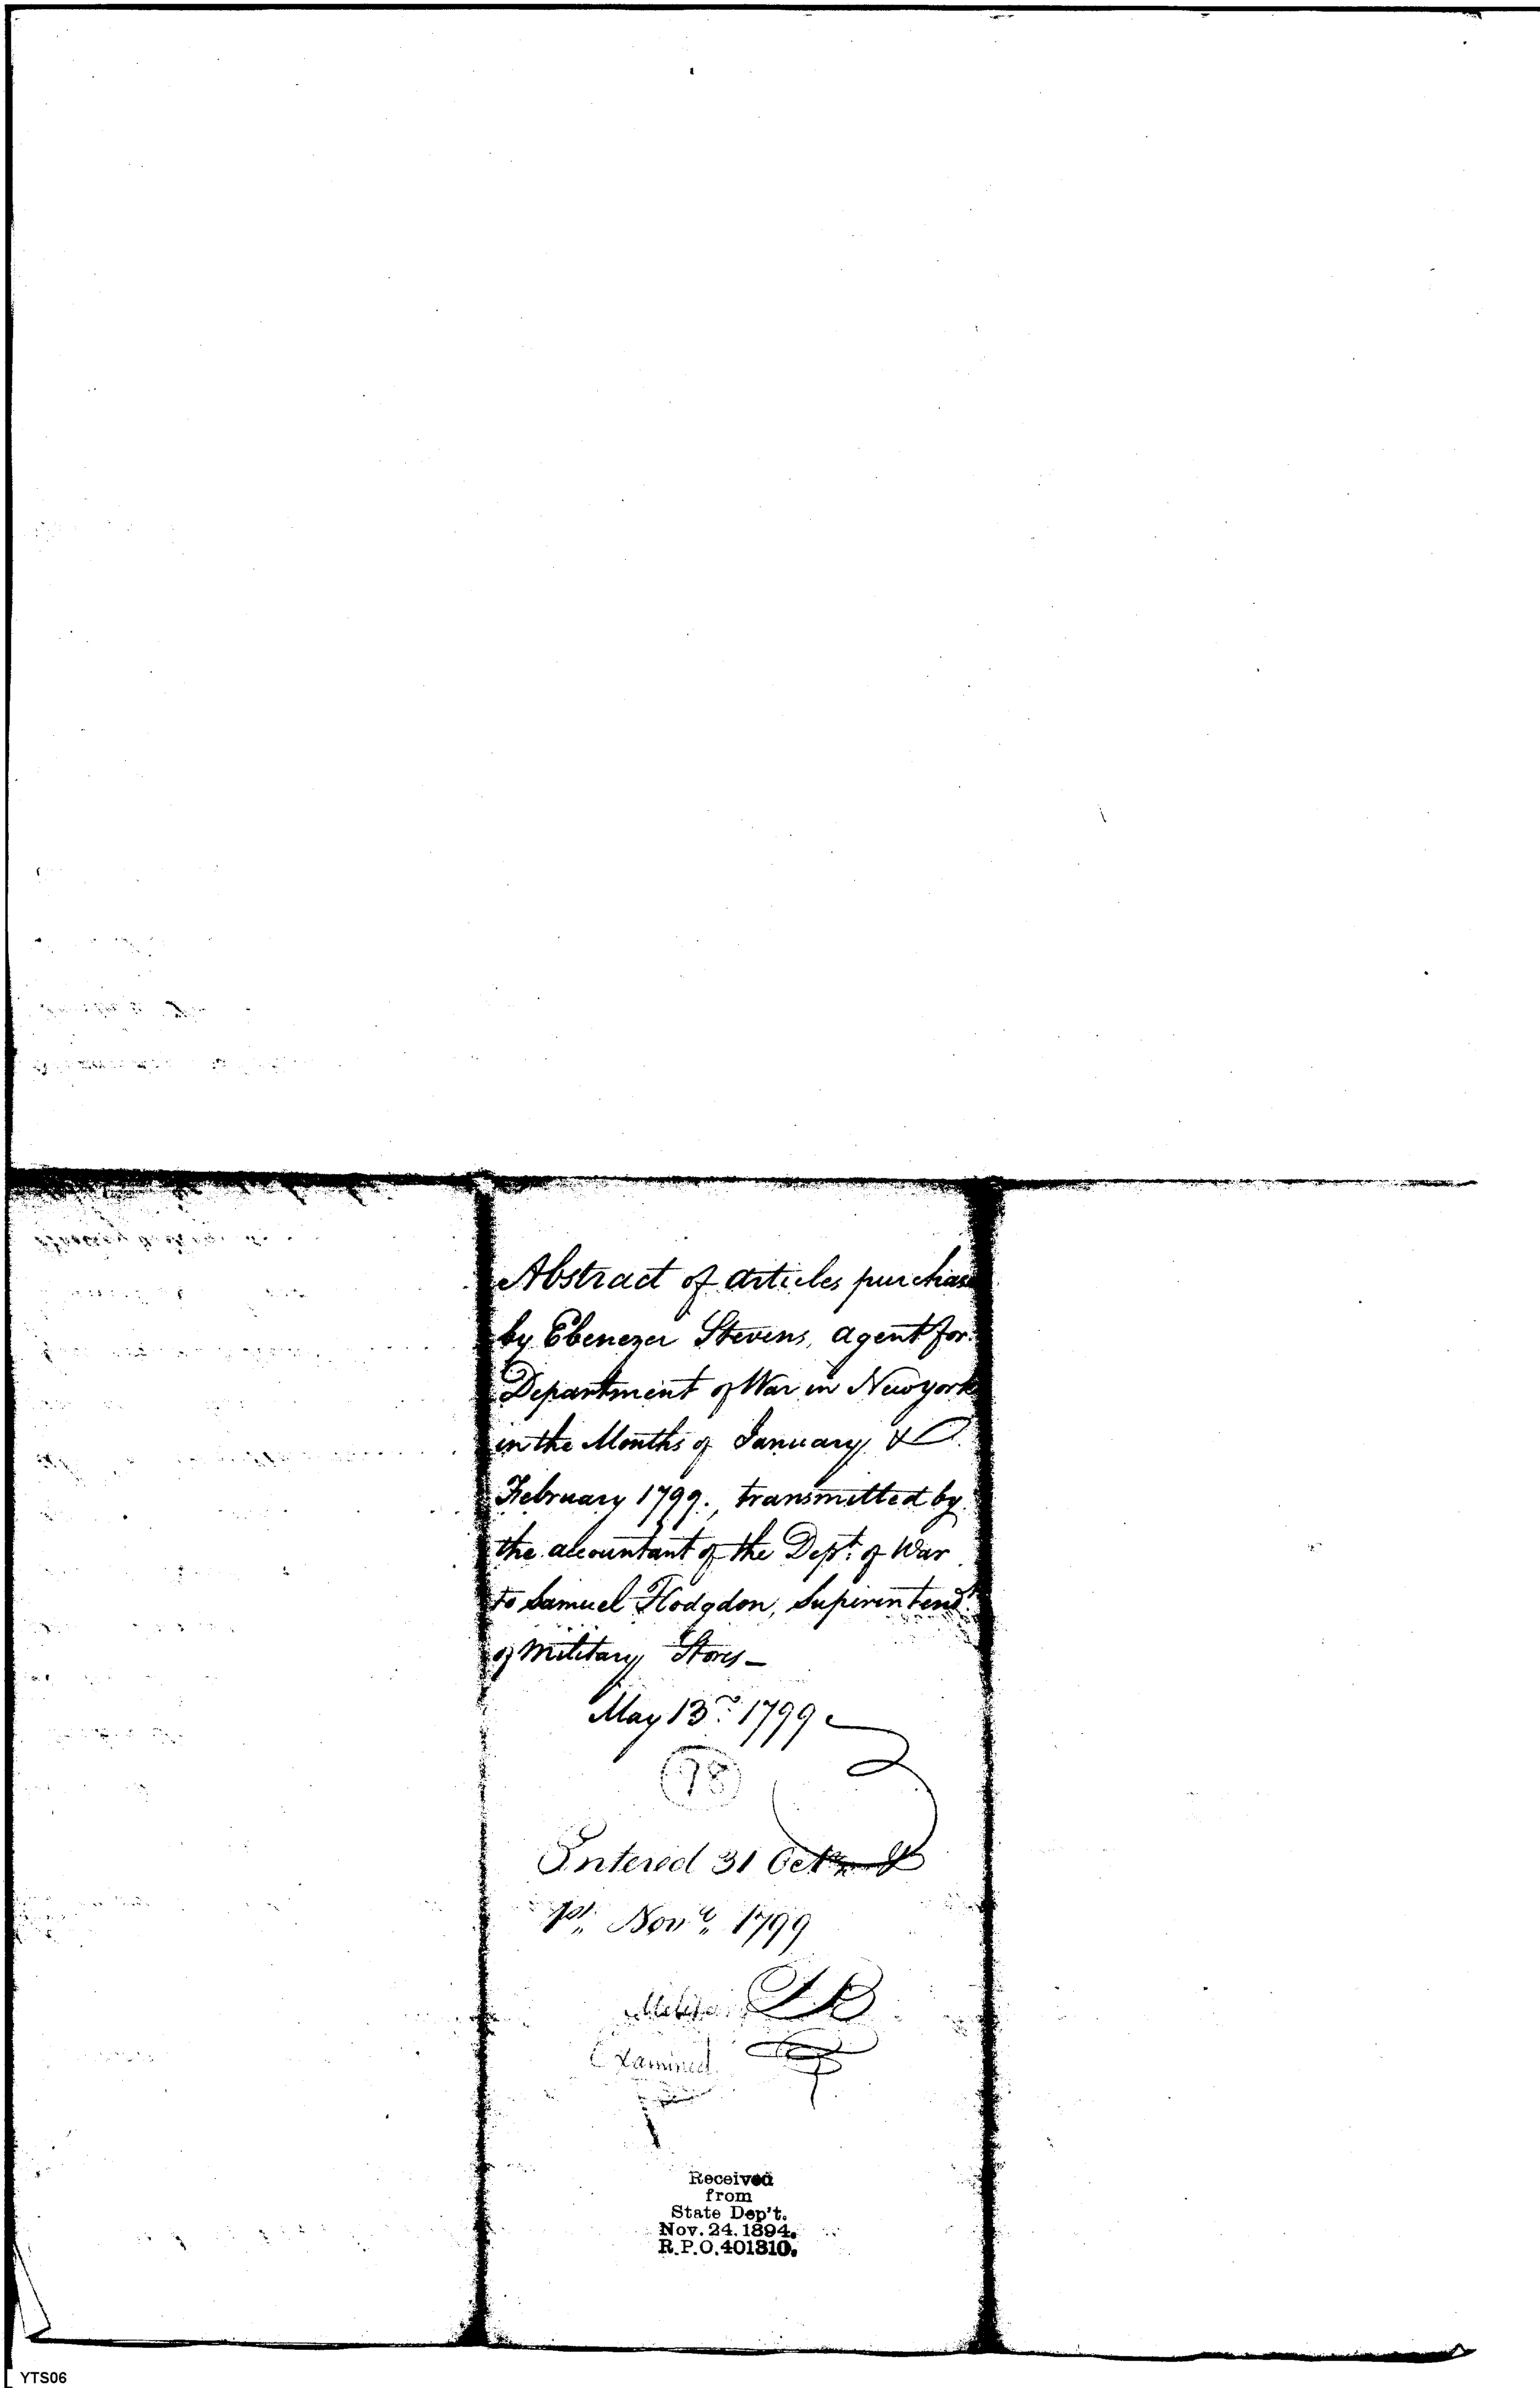 Abstract of articles purchase
by Ebenezer Stevens, agent for
Department of War in Newyork
in the Months of January &
February 1799., transmitted by
the accountant of the Dept. of War
to Samuel Hodgdon, Superintendt.
of Military Stores —
May 13th. 1799
78
Entered 31 Octr. &
1st. Novr. 1799
Examined
Received
from
State Dep't.
Nov. 24. 1894.
R.P.O. 401310.
YTS06